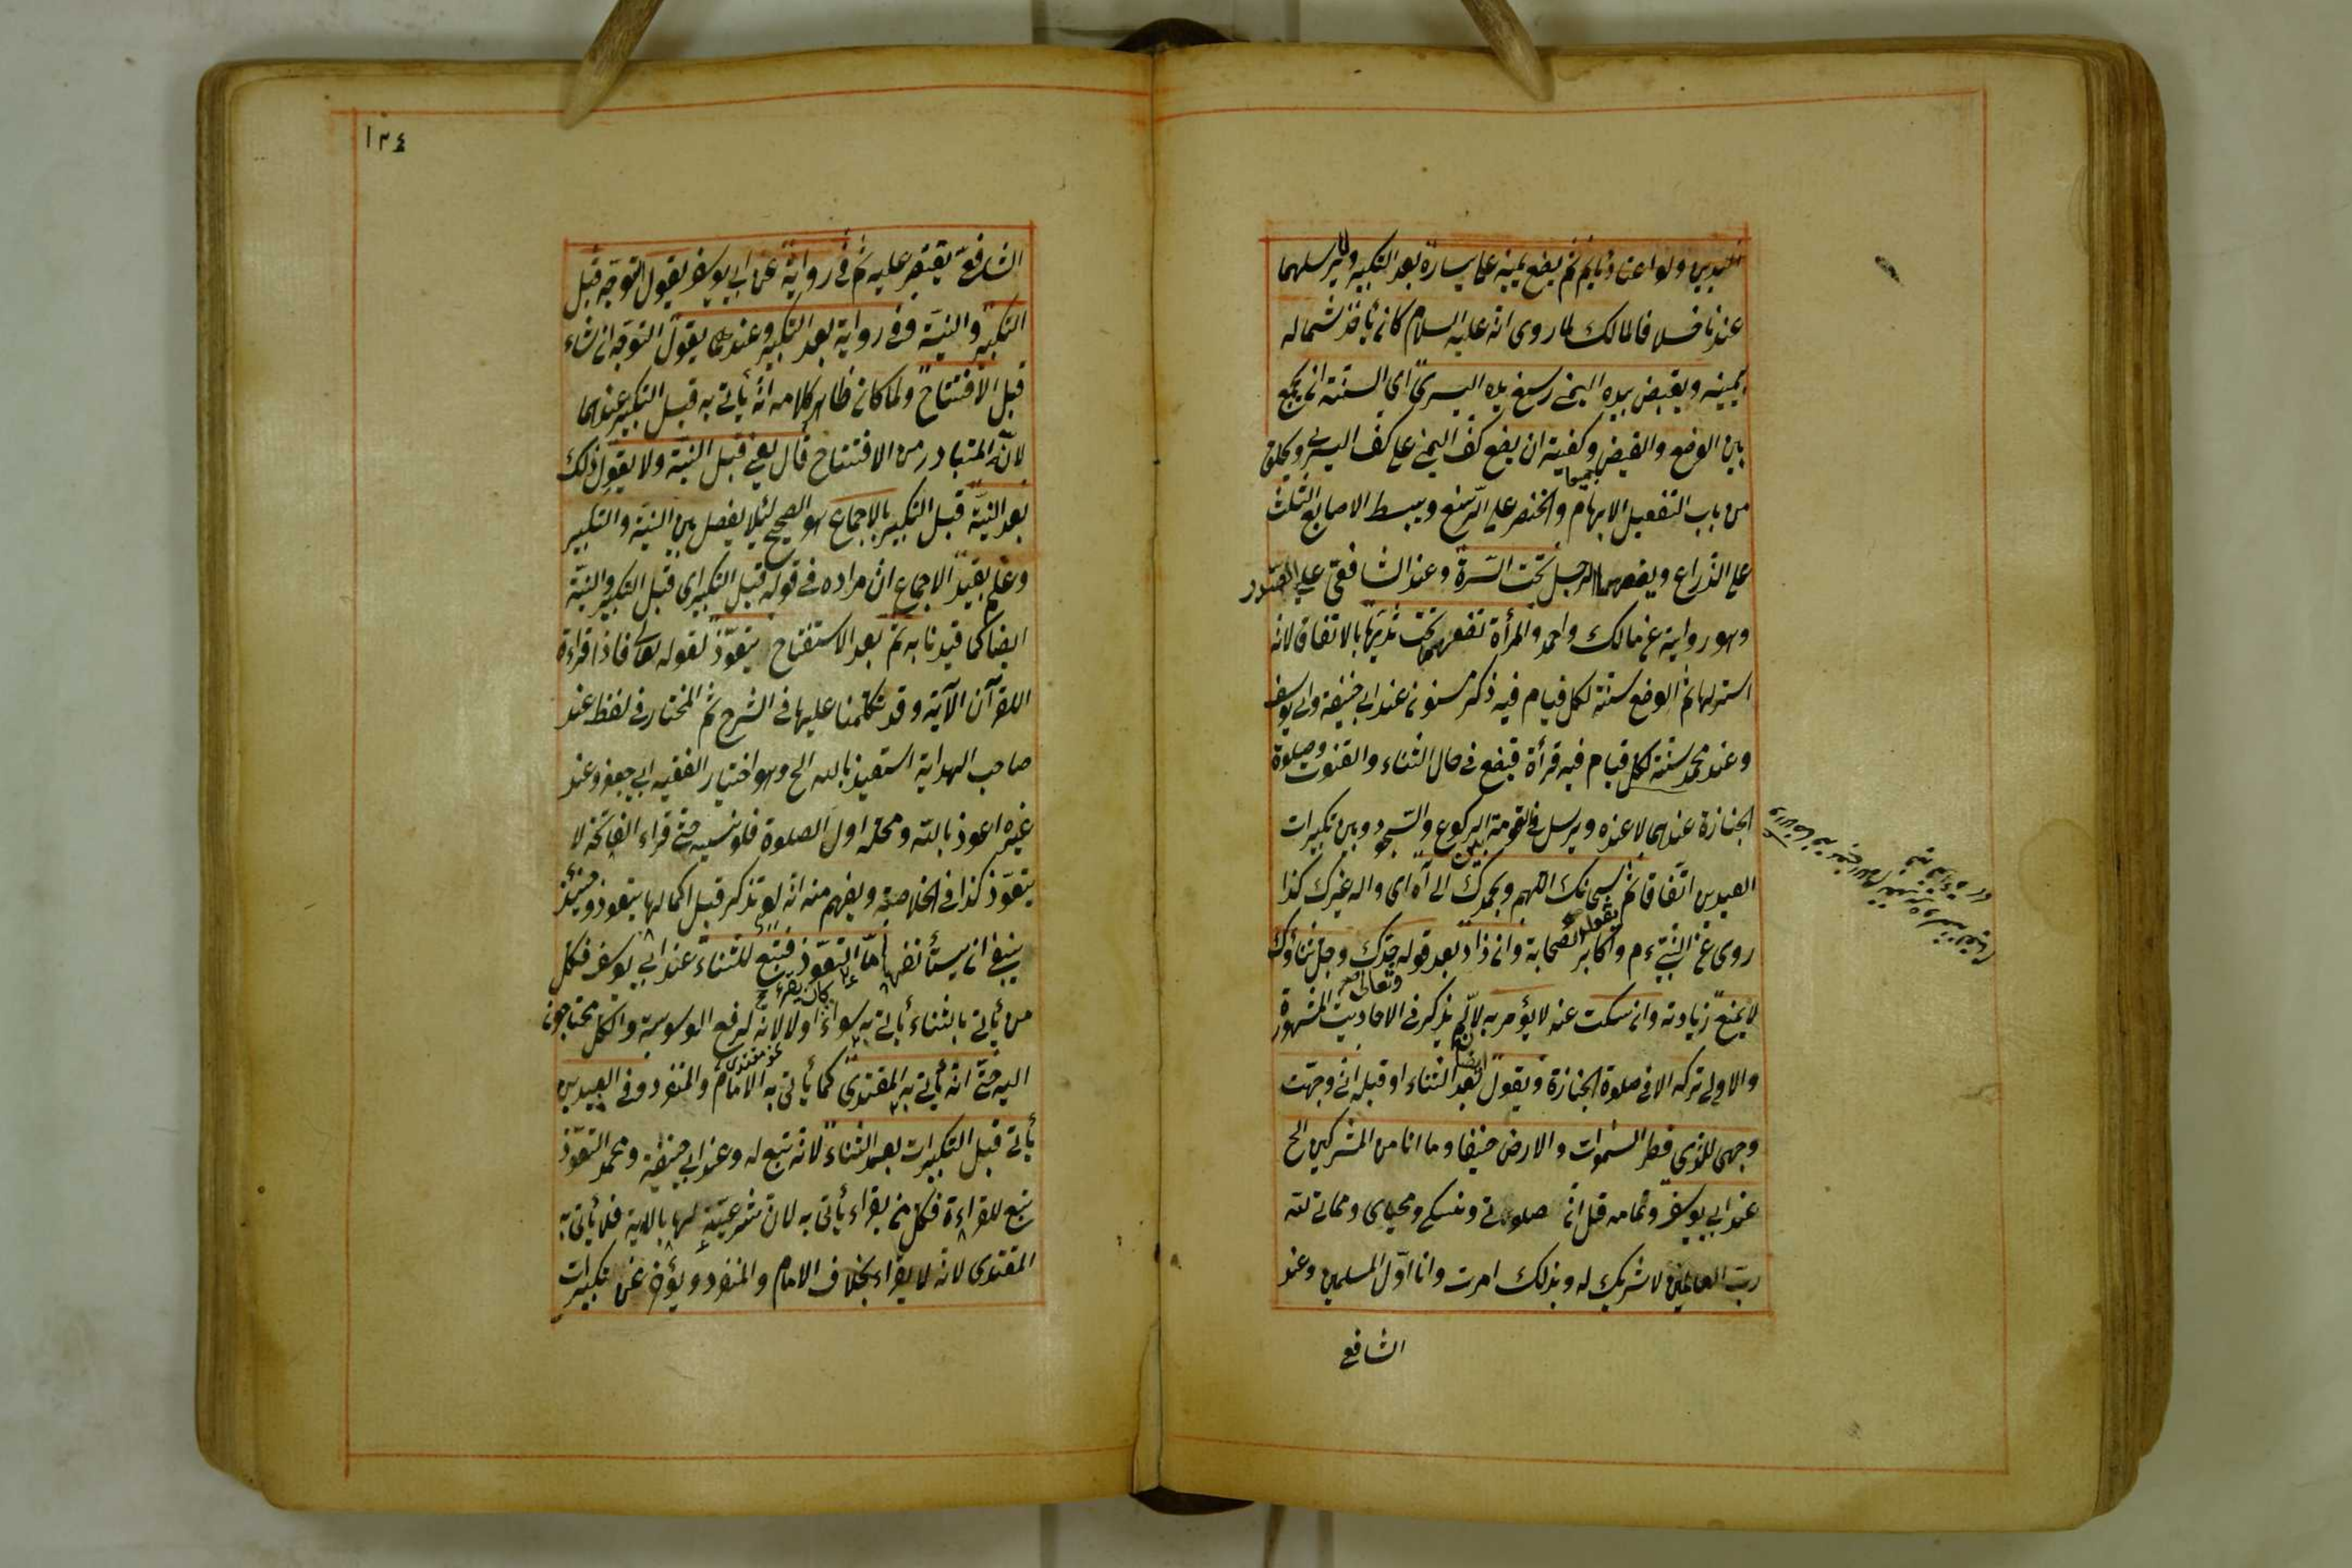 ثم يضع يمينه على يساره بعد التكبير ولا يرسلهما
عندنا خلافا لمالك لما روى انه عليه السلام كان يأخذ شماله
بيمينه ويقبض بيده اليمنى رسغ يده اليسرى اى السنة ان يجمع
بين الوضع والقبض وكفية ان يضع كف اليمنى على كف اليسرى ويحلق
من باب التفعيل الابهام والخنصر على الرسغ ويبسط الاصابع الثلث
على الذراع ويضعهما الرجل تحت السرة وعند الشافعى على الصدر
وهو رواية عن مالك واحمد والمرأة تضعهما تحت ثدييها بالاتفاق لانه
استر لها ثم الوضع سنة لكل قيام فيه ذكر مسنون عند ابى حنيفة وابى يوسف
وعند محمد سنة لكل قيام فيه قرأة فيضع فى حال الثناء والقنوت وصلوة
الجنازة عندهما لا عنده ويرسل فى القومة بين الركوع والسجود وبين تكبيرات
العيدين اتفاقا ثم يقول سبحانك اللهم وبحمدك الى آه اى واله غيرك كذا
روى عن النبى ءم واكابر الصحابة وان زاد بعد قوله جدك وجل ثناؤك
لا يمنع زيادته وان سكت عنه لا يؤمر به لانه لم يذكر فى الاحاديث المشهورة
والاولى تركه الا فى صلوة الجنازة ويقول ايضا بعد الثناء او قبله انى وجهت
وجهى للذى فطر السموات والارض حنيفا وما انا من المشركين الح
عند ابى يوسف وتمامه قل ان صلوتى ونسكى ومحياى ومماتى لله
رب العالمين لا شريك له وبذلك امرت وانا اول المسلمين وعند
الشافعى
١٢٤
الشافعى يقتصر عليه ثم فى رواية عن ابى يوسف يقول التوجه قبل
التكبير والنية وفى رواية بعد التكبير وعندهما يقول التوجه ان شاء
قبل الافتتاح ولما كان ظاهر كلامه انه يأتى به قبل التكبير عندهما
لانه المتبادر من الافتتاح قال يعنى قبل النية ولا يقول ذلك
بعد النية قبل التكبير بالاجماع هو الصحيح لئلا يفصل بين النية والتكبير
وعلم بقيد الاجماع ان مراده فى قوله قبل التكبير اى قبل التكبير والنية
ايضا كما قيدنا به ثم بعد الاستفتاح يتعوذ لقوله تعالى فاذا قراءة
القرآن الآية وقد تكلمنا عليها فى الشرح ثم المختار فى لفظه عند
صاحب الهداية استعيذ بالله الح وهو اختيار الفقيه ابى جعفر وعند
غيره اعوذ بالله ومحله اول الصلوة فلو نسيه حتى قراء الفاتحة لا
يتعوذ كذا فى الخلاصة ويفهم منه انه لو تذكر قبل اكمالها يتعوذ وحينئذ
ينبغى ان يستأنفها اما التعوذ فتبع للثناء عند ابى يوسف فكل
من يأتى بالثناء يأتى به سواء كان يقرء اولا لانه لرفع الوسوسة والكل محتاجون
اليه حتى انه يأتى به المقتدى كما يأتى به الامام والمنفرد وفى العيدين
يأتى قبل التكبيرات بعد الثناء لانه تبع له وعند ابى حنيفة ومحمد التعوذ
تبع للقراءة فكل من يقراء يأتى به لان شرعيته لها بالاية فلا يأتى به
المقتدى لانه لا يقراء بخلاف الامام والمنفرد ويؤخر عن تكبيرات